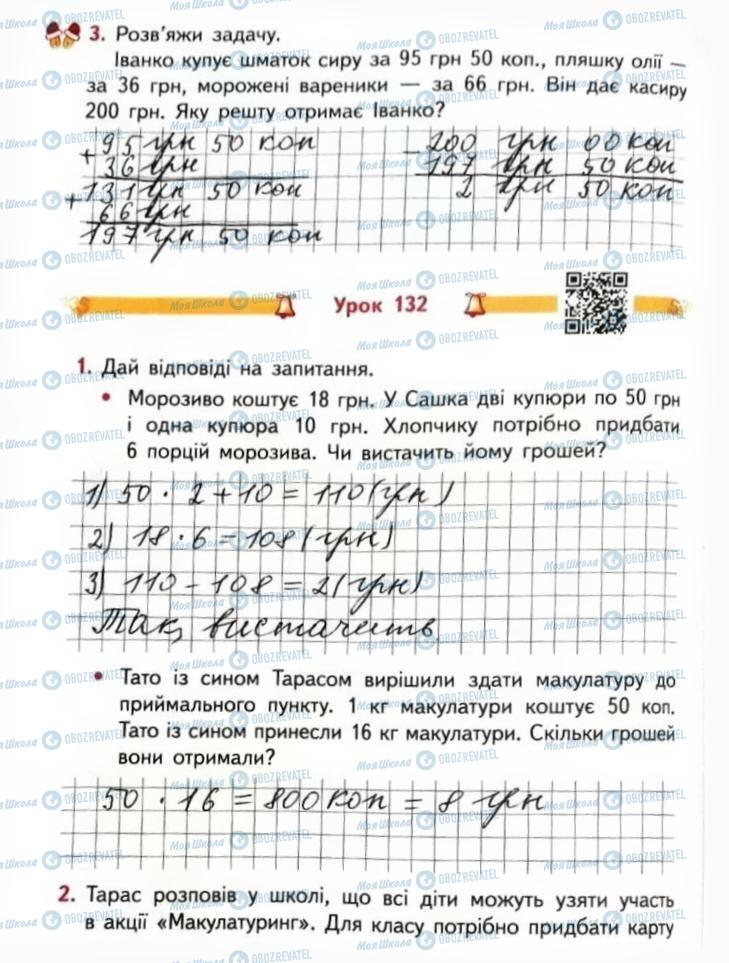 3. Розв'яжи задачу.
Іванко купує шматок сиру за 95 грн 50 коп., пляшку олії —
за 36 грн, морожені вареники — за 66 грн. Він дає касиру
200 грн. Яку решту отримає Іванко?
+ 95 грн 50 коп
36 грн
+ 131 грн 50 коп
66 грн
197 грн 50 коп
− 200 грн 00 коп
197 грн 50 коп
2 грн 50 коп
Урок 132
1. Дай відповіді на запитання.
• Морозиво коштує 18 грн. У Сашка дві купюри по 50 грн
і одна купюра 10 грн. Хлопчику потрібно придбати
6 порцій морозива. Чи вистачить йому грошей?
1) 50 · 2 + 10 = 110 (грн)
2) 18 · 6 = 108 (грн)
3) 110 − 108 = 2 (грн)
Так, вистачить
• Тато із сином Тарасом вирішили здати макулатуру до
приймального пункту. 1 кг макулатури коштує 50 коп.
Тато із сином принесли 16 кг макулатури. Скільки грошей
вони отримали?
50 · 16 = 800 коп = 8 грн
2. Тарас розповів у школі, що всі діти можуть узяти участь
в акції «Макулатуринг». Для класу потрібно придбати карту
МояШкола OBOZREVATEL